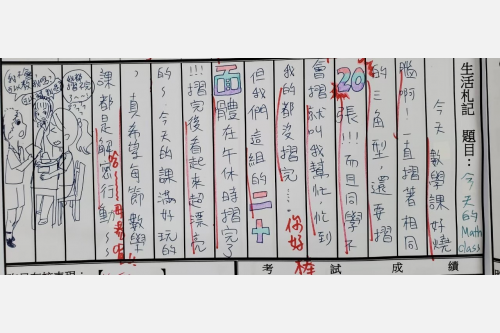 生活札記 題目：今天的Math class
今天數學課好燒
腦啊！一直摺著相同
的三角型，還要摺
20張!!!而且同學不
會摺就叫我幫忙，忙到
我的都沒摺完....
你好棒
但我們這組的二十
面體在午休時摺完了
!!!摺完後看起來超漂亮
的~今天的課滿好玩的
，真希望每節數學
課都是解密行動~~
考試成績